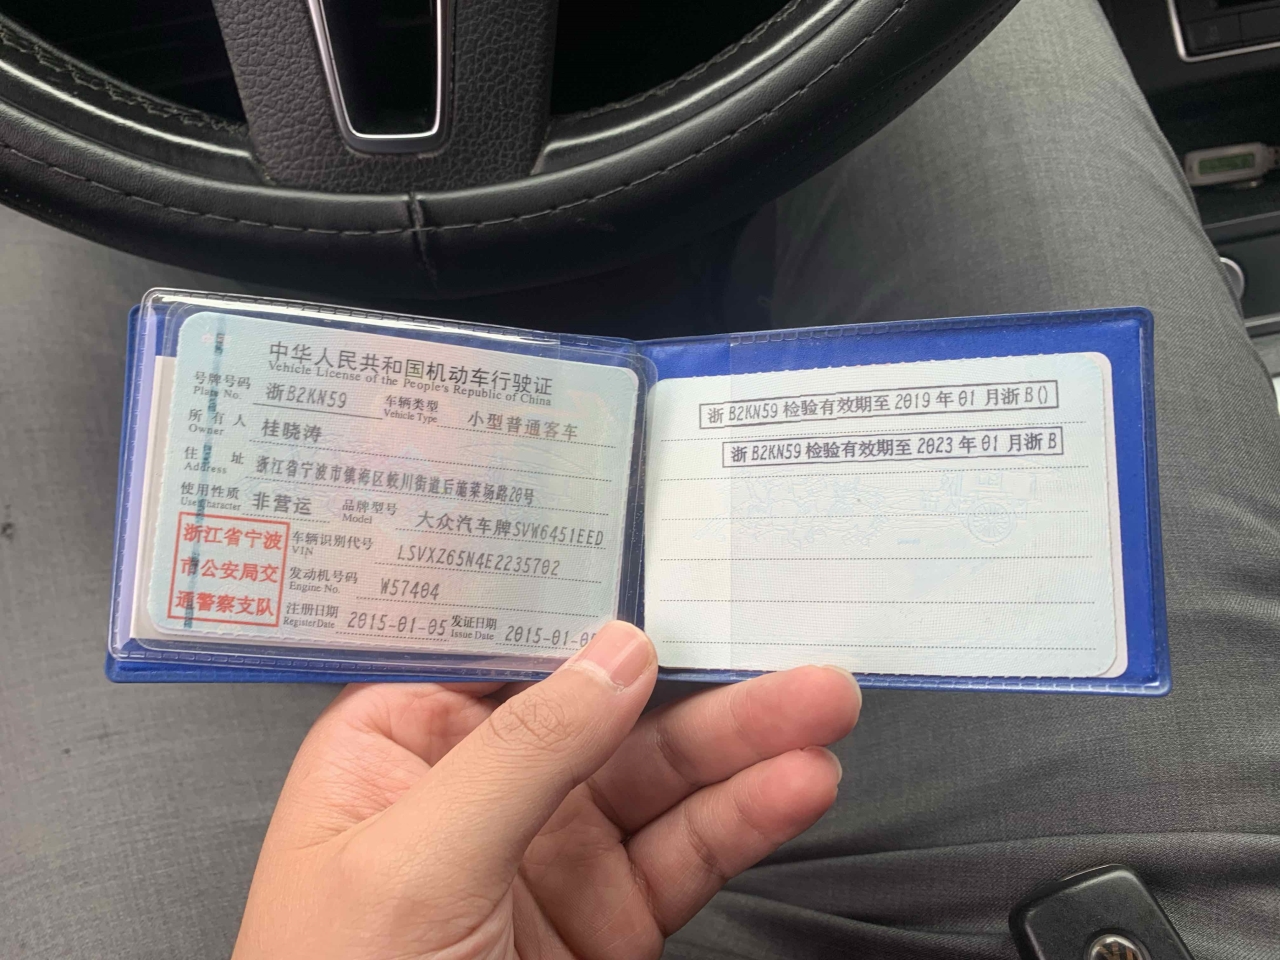 中华人民共和国机动车行驶证
Vehicle License of the People's Republic of China
号牌号码 浙B2KN59 车辆类型 小型普通客车
Plate No. Vehicle Type
所有人 桂晓涛
Owner
住址 浙江省宁波市镇海区蛟川街道后施菜场路20号
Address
使用性质 非营运 品牌型号 大众汽车牌SVW6451EED
Use Character Model
浙江省宁波
市公安局交
通警察支队
车辆识别代号 LSVXZ65N4E2235702
VIN
发动机号码 W57404
Engine No.
注册日期 2015-01-05 发证日期 2015-01-0
Register Date Issue Date
浙B2KN59 检验有效期至 2019 年 01 月浙B()
浙B2KN59 检验有效期至 2023 年 01 月浙B